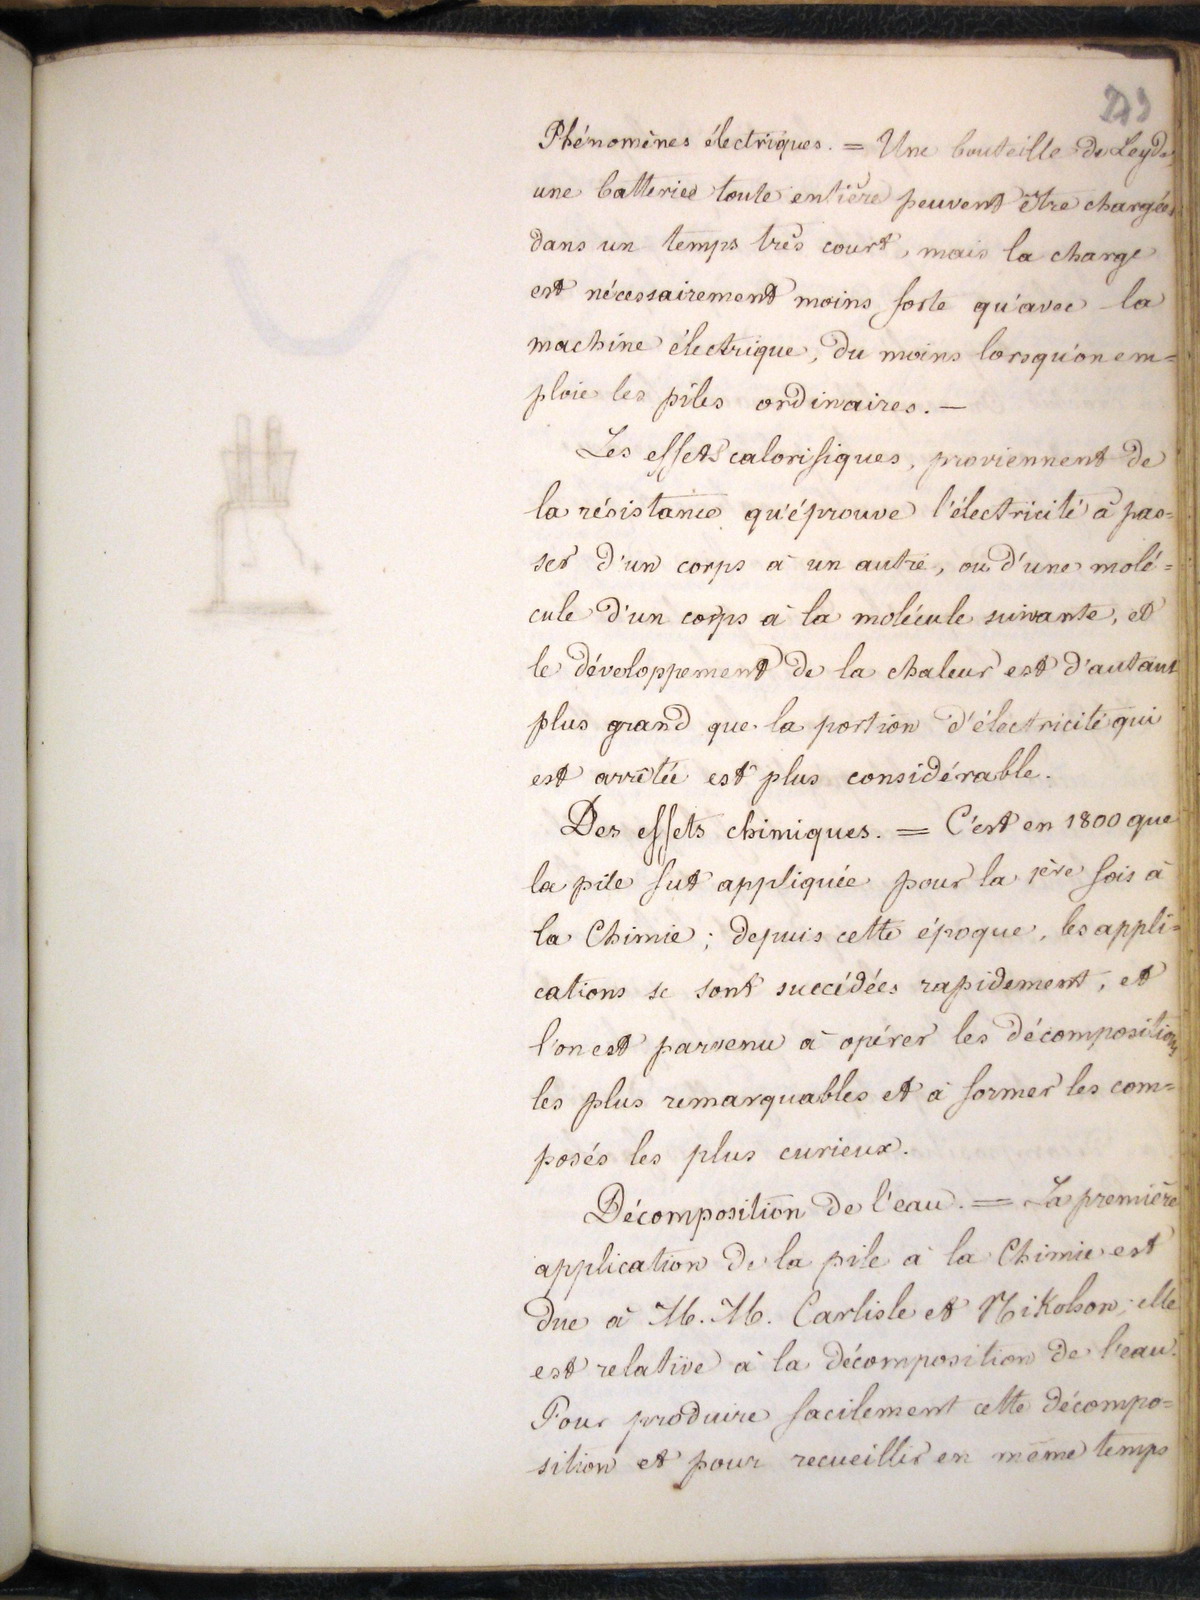 Phénomènes électriques. = Une bouteille de Leyde,
une batterie toute entière peuvent être chargées
dans un temps très court, mais la charge
est nécessairement moins forte qu'avec la
machine électrique, du moins lorsqu'on em=
ploie les piles ordinaires. —
Les effets calorifiques, proviennent de
la résistance qu'éprouve l'électricité à pas=
ser d'un corps à un autre, ou d'une molé=
cule d'un corps à la molécule suivante, et
le développement de la chaleur est d'autant
plus grand que la portion d'électricité qui
est arrêtée est plus considérable.
Des effets chimiques. = C'est en 1800 que
la pile fut appliquée pour la 1ère fois à
la Chimie ; depuis cette époque, les appli=
cations se sont succédées rapidement, et
l'on est parvenu à opérer les décompositions
les plus remarquables et à former les com=
posés les plus curieux.
Décomposition de l'eau. = La première
application de la pile à la Chimie est
due à M. M. Carlisle et Nikolson ; elle
est relative à la décomposition de l'eau.
Pour produire facilement cette décompo=
sition et pour recueillir en même temps